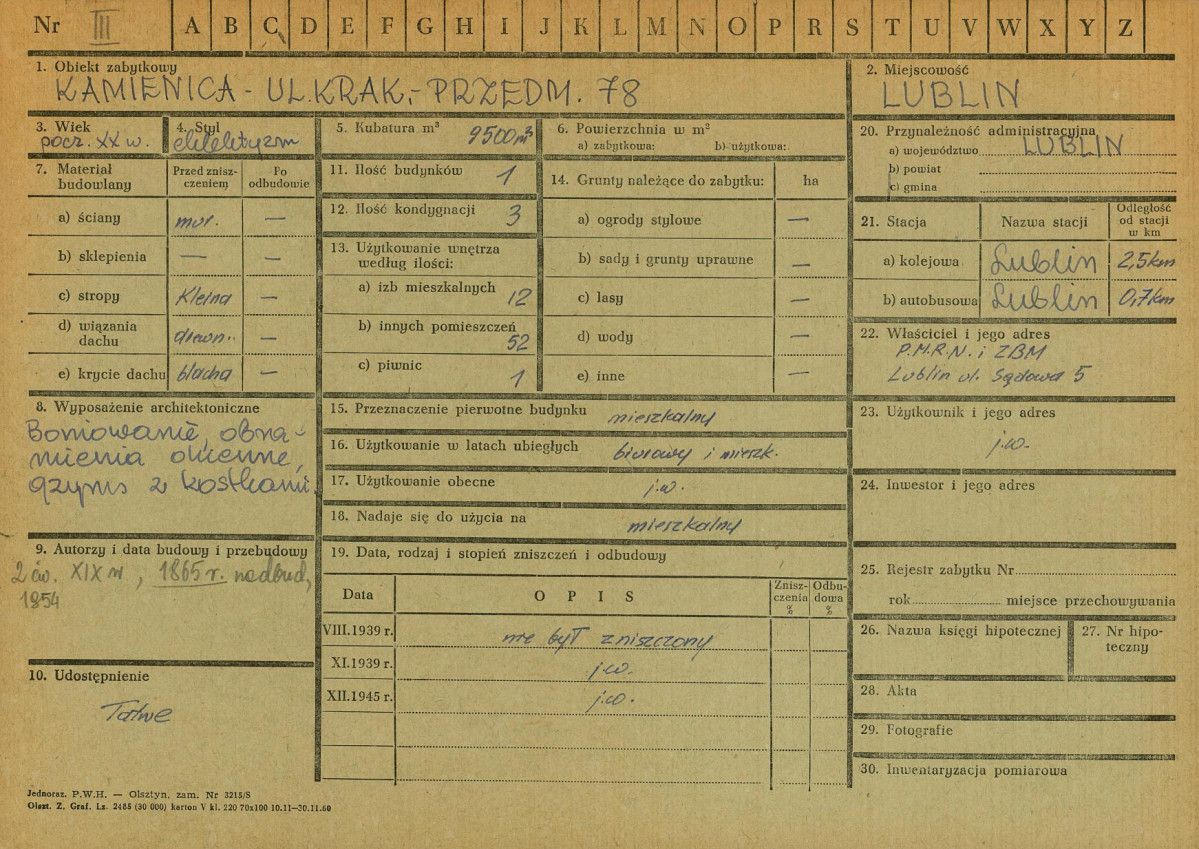 Nr III A B C D E F G H I J K L M N O P R S T U V W X Y Z
1. Obiekt zabytkowy
KAMIENICA - UL. KRAK.- PRZEDM. 78
2. Miejscowość
LUBLIN
3. Wiek
pocz. XX w.
4. Styl
eklektyzm
5. Kubatura m³ 9500 m³
6. Powierzchnia w m²
a) zabytkowa: b) użytkowa:
7. Materiał budowlany
Przed znisz-
czeniem
Po
odbudowie
a) ściany mur. —
b) sklepienia — —
c) stropy Kleina —
d) wiązania
dachu drewn. —
e) krycie dachu blacha —
8. Wyposażenie architektoniczne
Boniowanie, obra-
mienia okienne,
gzyms z kostkami
9. Autorzy i data budowy i przebudowy
2 ćw. XIX w, 1865 r. nadbud,
1854
10. Udostępnienie
Łatwe
11. Ilość budynków 1
12. Ilość kondygnacji 3
13. Użytkowanie wnętrza
według ilości:
a) izb mieszkalnych 12
b) innych pomieszczeń
52
c) piwnic 1
14. Grunty należące do zabytku: ha
a) ogrody stylowe —
b) sady i grunty uprawne —
c) lasy —
d) wody —
e) inne —
15. Przeznaczenie pierwotne budynku mieszkalny
16. Użytkowanie w latach ubiegłych biurowy i mieszk.
17. Użytkowanie obecne j.w.
18. Nadaje się do użycia na mieszkalny
19. Data, rodzaj i stopień zniszczeń i odbudowy
Data O P I S
Znisz-
czenia
%
Odbu-
dowa
%
VIII.1939 r. nie był zniszczony
XI.1939 r. j.w.
XII.1945 r. j.w.
20. Przynależność administracyjna
a) województwo LUBLIN
b) powiat
c) gmina
21. Stacja Nazwa stacji
Odległość
od stacji
w km
a) kolejowa Lublin 2,5 km
b) autobusowa Lublin 0,7 km
22. Właściciel i jego adres
P.M.R.N. i ZBM
Lublin ul. Sądowa 5
23. Użytkownik i jego adres
j.w.
24. Inwestor i jego adres
25. Rejestr zabytku Nr
rok miejsce przechowywania
26. Nazwa księgi hipotecznej
27. Nr hipo-
teczny
28. Akta
29. Fotografie
30. Inwentaryzacja pomiarowa
Jednoraz. P.W.H. — Olsztyn, zam. Nr 3215/S
Olszt. Z. Graf. Lz. 2485 (30 000) karton V kl. 220 70x100 10.11—30.11.60